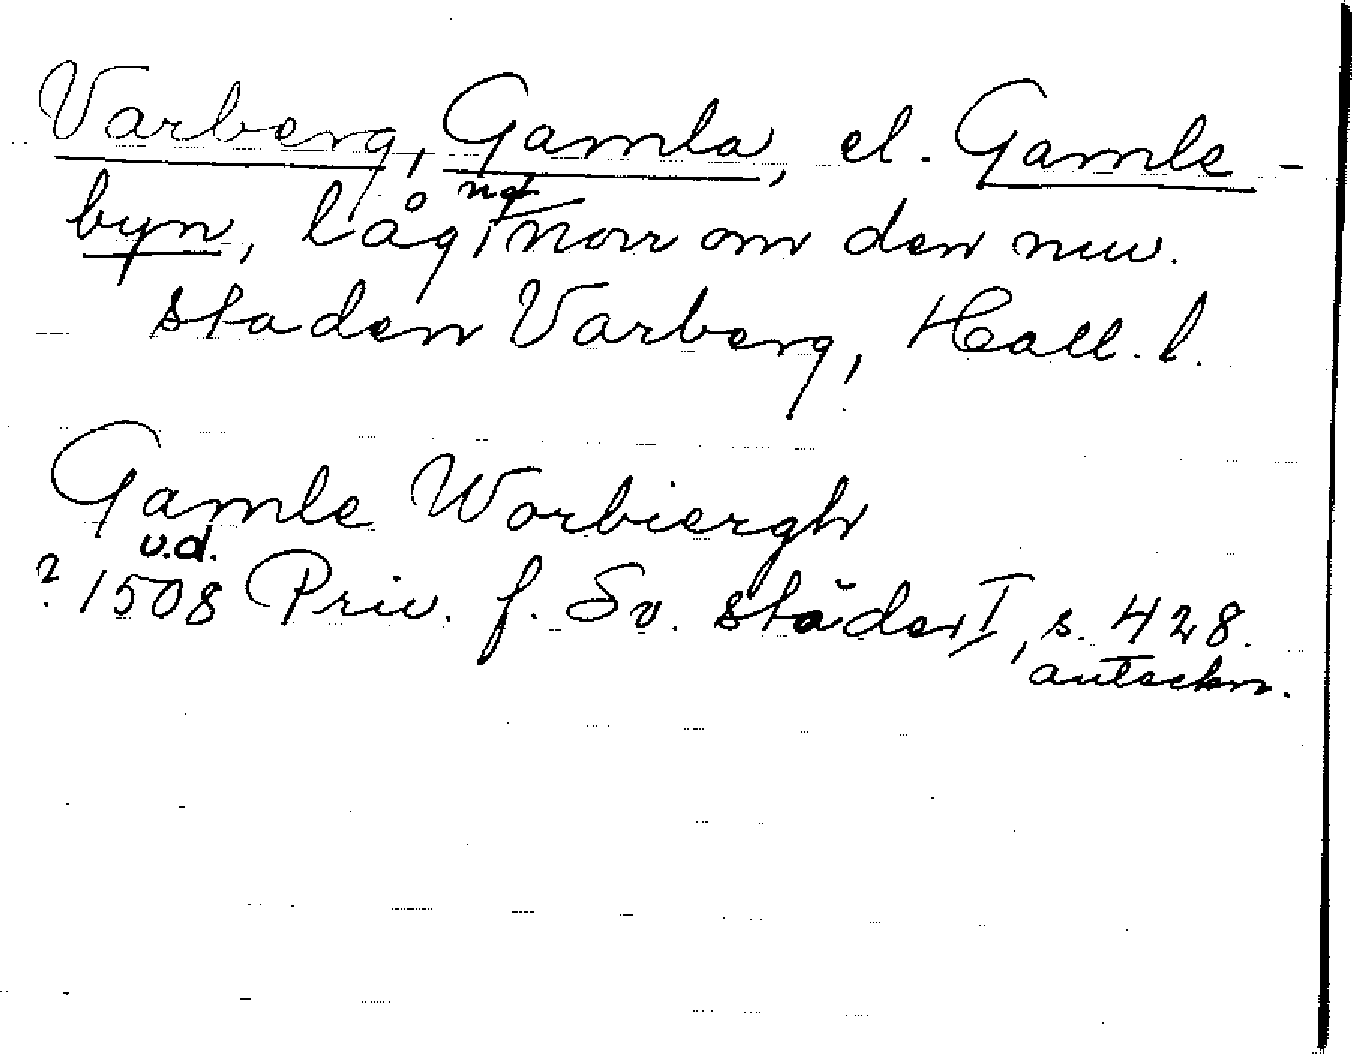 Varberg, Gamla, el. Gamle-
byn, låg något norr om den nuv.
staden Varberg, Hall. l.
Gamle Worbiergh
u.d.
? 1508 Priv. f. Sv. städer I, s. 428.